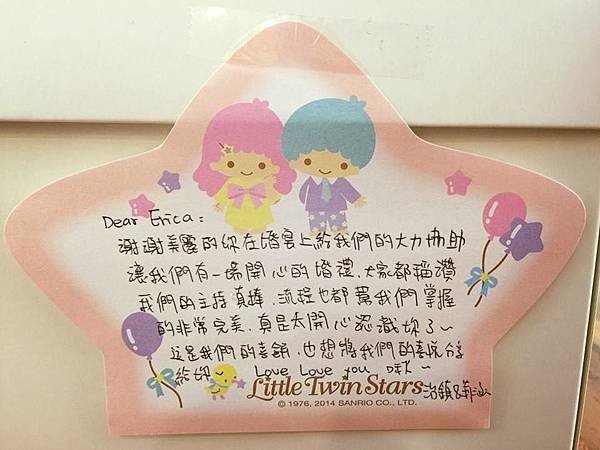 Dear Erica：
謝謝美麗的妳在婚宴上給我們的大力協助
讓我們有一場開心的婚禮、大家都稱讚
我們的主持真棒、流程也都幫我們掌握
的非常完美、真是太開心認識妳了～
這是我們的喜餅、也想將我們的喜悅分享
給妳 Love Love you 啾～
Little Twin Stars
© 1976, 2014 SANRIO CO., LTD.